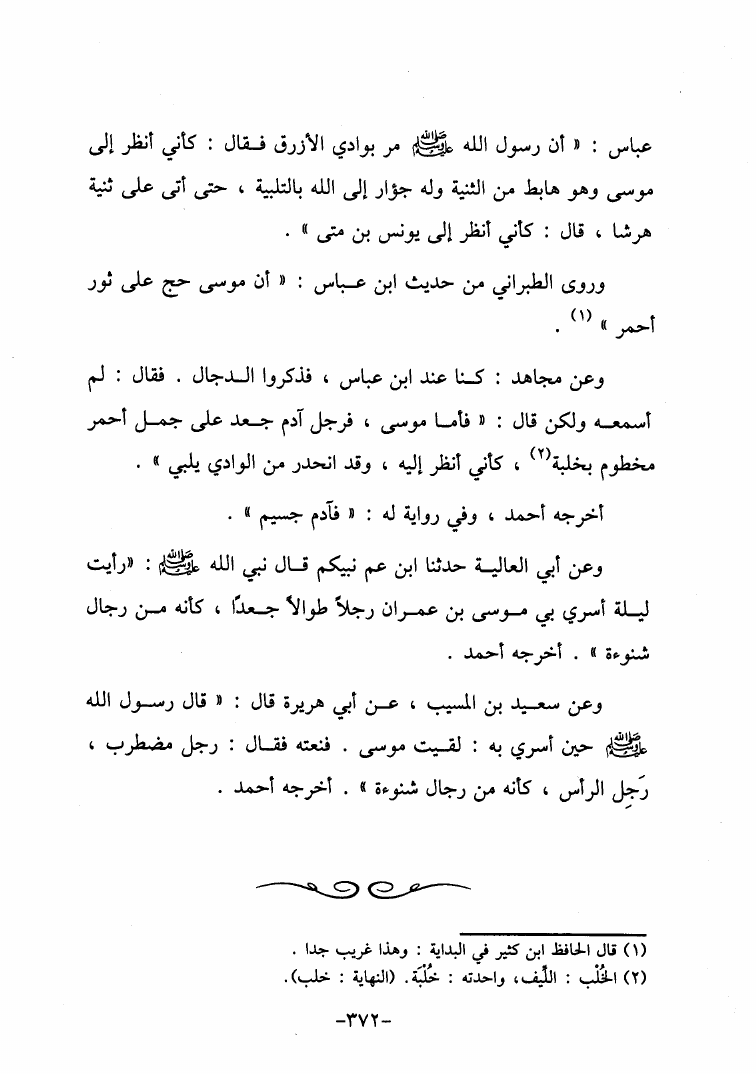 عباس : « أن رسول الله ﷺ مر بوادي الأزرق فقال : كأني أنظر إلى
موسى وهو هابط من الثنية وله جؤار إلى الله بالتلبية ، حتى أتى على ثنية
هرشا ، قال : كأني أنظر إلى يونس بن متى » .
وروى الطبراني من حديث ابن عباس : « أن موسى حج على ثور
أحمر » (١) .
وعن مجاهد : كنا عند ابن عباس ، فذكروا الدجال . فقال : لم
أسمعه ولكن قال : « فأما موسى ، فرجل آدم جعد على جمل أحمر
مخطوم بخلبة(٢) ، كأني أنظر إليه ، وقد انحدر من الوادي يلبي » .
أخرجه أحمد ، وفي رواية له : « فآدم جسيم » .
وعن أبي العالية حدثنا ابن عم نبيكم قال نبي الله ﷺ : «رأيت
ليلة أسري بي موسى بن عمران رجلاً طوالاً جعدًا ، كأنه من رجال
شنوءة » . أخرجه أحمد .
وعن سعيد بن المسيب ، عن أبي هريرة قال : « قال رسول الله
ﷺ حين أسري به : لقيت موسى . فنعته فقال : رجل مضطرب ،
رَجِل الرأس ، كأنه من رجال شنوءة » . أخرجه أحمد .
(١) قال الحافظ ابن كثير في البداية : وهذا غريب جدا .
(٢) الخُلْب : اللِّيف، واحدته : خُلْبَة. (النهاية : خلب).
-٣٧٢-